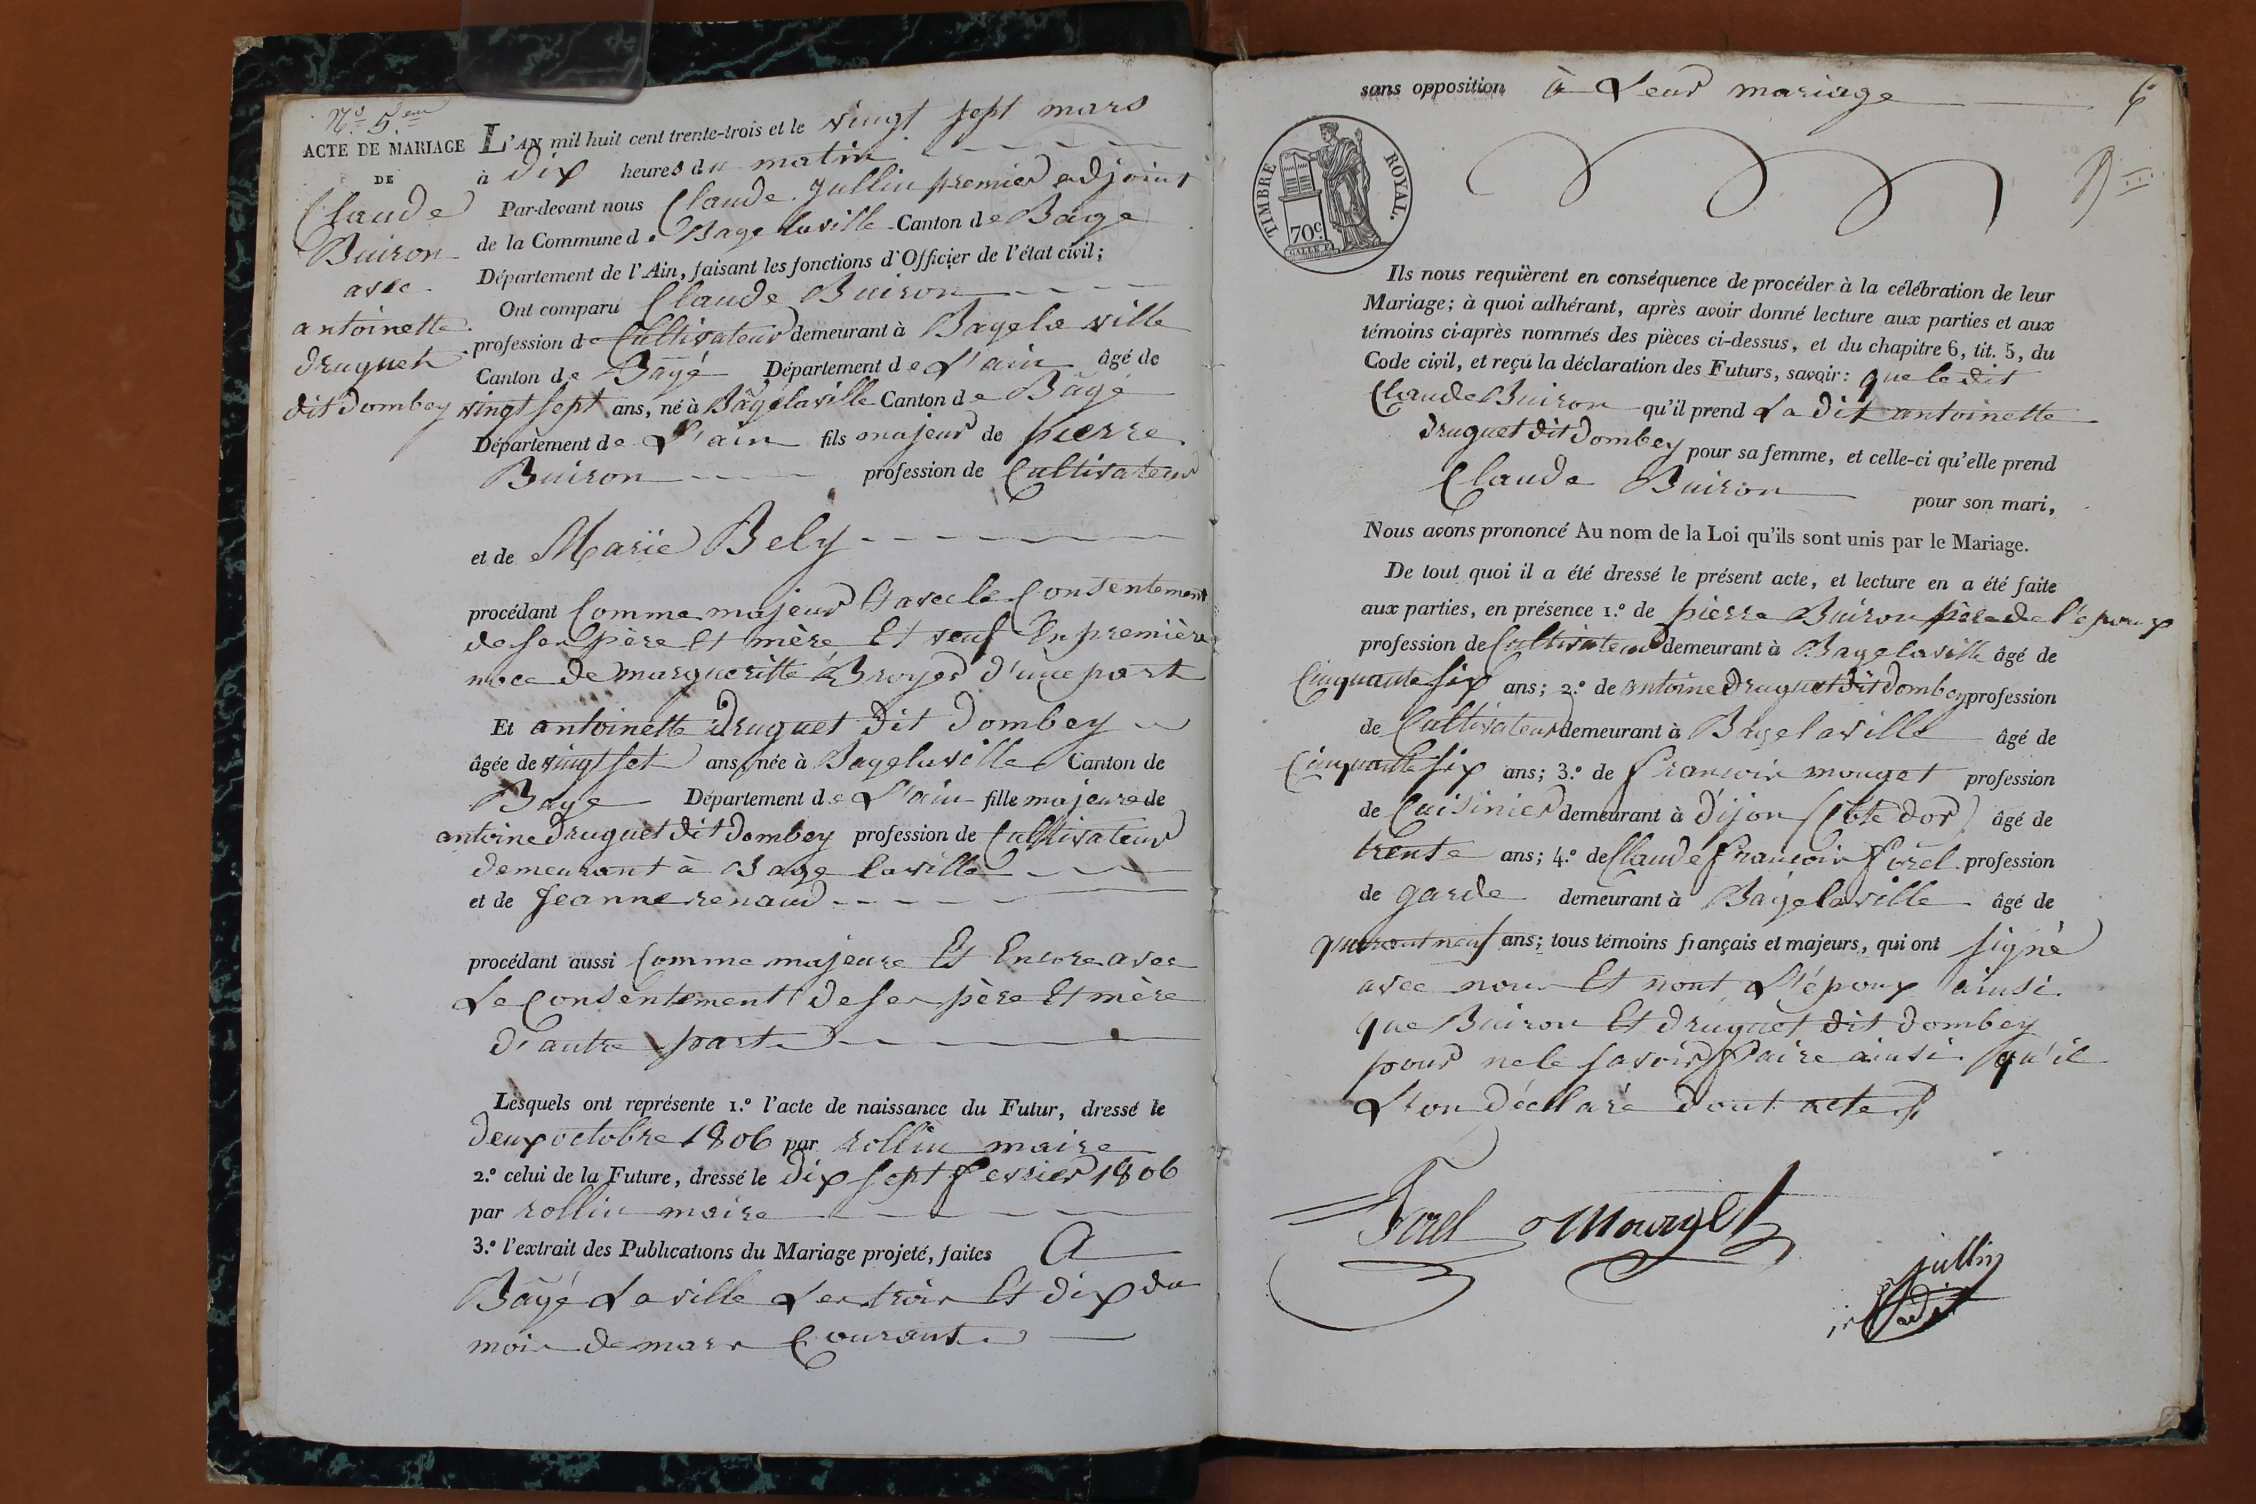 N.o 5.eme
ACTE DE MARIAGE
DE
Claude
Buiron
avec
antoinette
druguet
dit dombey
L'AN mil huit cent trente-trois et le vingt sept mars
à dix heures du matin
Par-devant nous Claude Jullin premier adjoint
de la Commune de Bagelaville Canton de Bagé
Département de l'Ain, faisant les fonctions d'Officier de l'état civil;
Ont comparu Claude Buiron
profession de Cultivateur demeurant à Bagela ville
Canton de Bagé Département de L'ain âgé de
vingt sept ans, né à Bâgelaville Canton de Bâgé
Département de L'ain fils majeur de pierre
Buiron profession de Cultivateur
et de Marie Bely
procédant Comme majeur Et avec le Consentement
de ses père Et mère Et veuf En première
noce de margueritte Broyer d'une part
Et antoinette druguet dit dombey
âgée de vingt set ans, née à Bagelaville Canton de
Bage Département de L'ain fille majeure de
antoine druguet dit dombey profession de Cultivateur
demeurant à Bage laville
et de Jeanne renaud
procédant aussi Comme majeure Et Encore avec
Le Consentement de ses père Et mère
d'autre part
Lesquels ont représente 1.o l'acte de naissance du Futur, dressé le
deux octobre 1806 par rollin maire
2.o celui de la Future, dressé le dix sept fevrier 1806
par rollin maire
3.o l'extrait des Publications du Mariage projeté, faites a
Bâgé Laville Les trois Et dix du
mois de mars Courant
sans opposition à Leur mariage
6
TIMBRE ROYAL.
70c.
Ils nous requièrent en conséquence de procéder à la célébration de leur
Mariage; à quoi adhérant, après avoir donné lecture aux parties et aux
témoins ci-après nommés des pièces ci-dessus, et du chapitre 6, tit. 5, du
Code civil, et reçu la déclaration des Futurs, savoir: que le dit
Claude Buiron qu'il prend La dit antoinette
druguet dit dombey pour sa femme, et celle-ci qu'elle prend
Claude Buiron pour son mari,
Nous avons prononcé Au nom de la Loi qu'ils sont unis par le Mariage.
De tout quoi il a été dressé le présent acte, et lecture en a été faite
aux parties, en présence 1.o de pierre Buiron père de l'époux
profession de Cultivateur demeurant à Bagelaville âgé de
Cinquante six ans; 2.o de antoine druguet dit dombey profession
de Cultivateur demeurant à Bagelaville âgé de
Cinquante six ans; 3.o de francois mouget profession
de Cuisinier demeurant à dijon (Côte dor) âgé de
trente ans; 4.o de Claude francois forel profession
de garde demeurant à Bagelaville âgé de
quarant neuf ans; tous témoins français et majeurs, qui ont signé
avec nous Et nont L'époux ainsi
que Buiron Et druguet dit dombey
pour ne le savoir faire ainsi qu'il
L'ron déclaré dont acte
Forel Mouget
jullin
adj